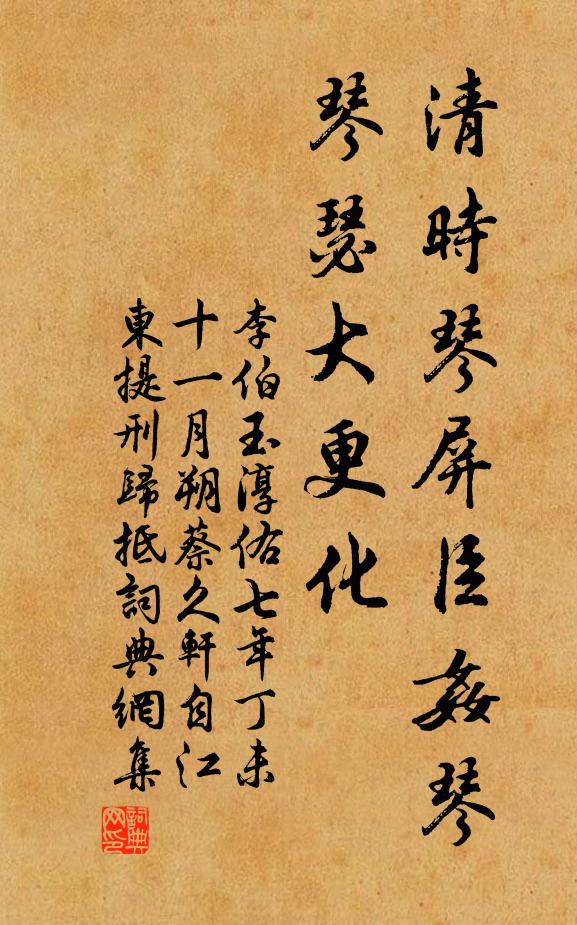 清時琴屏臣姦琴
琴瑟大更化
李伯玉淳佑七年丁未
十一月朔蔡久軒自江
東提刑歸抵詞典網集
詞典
网印